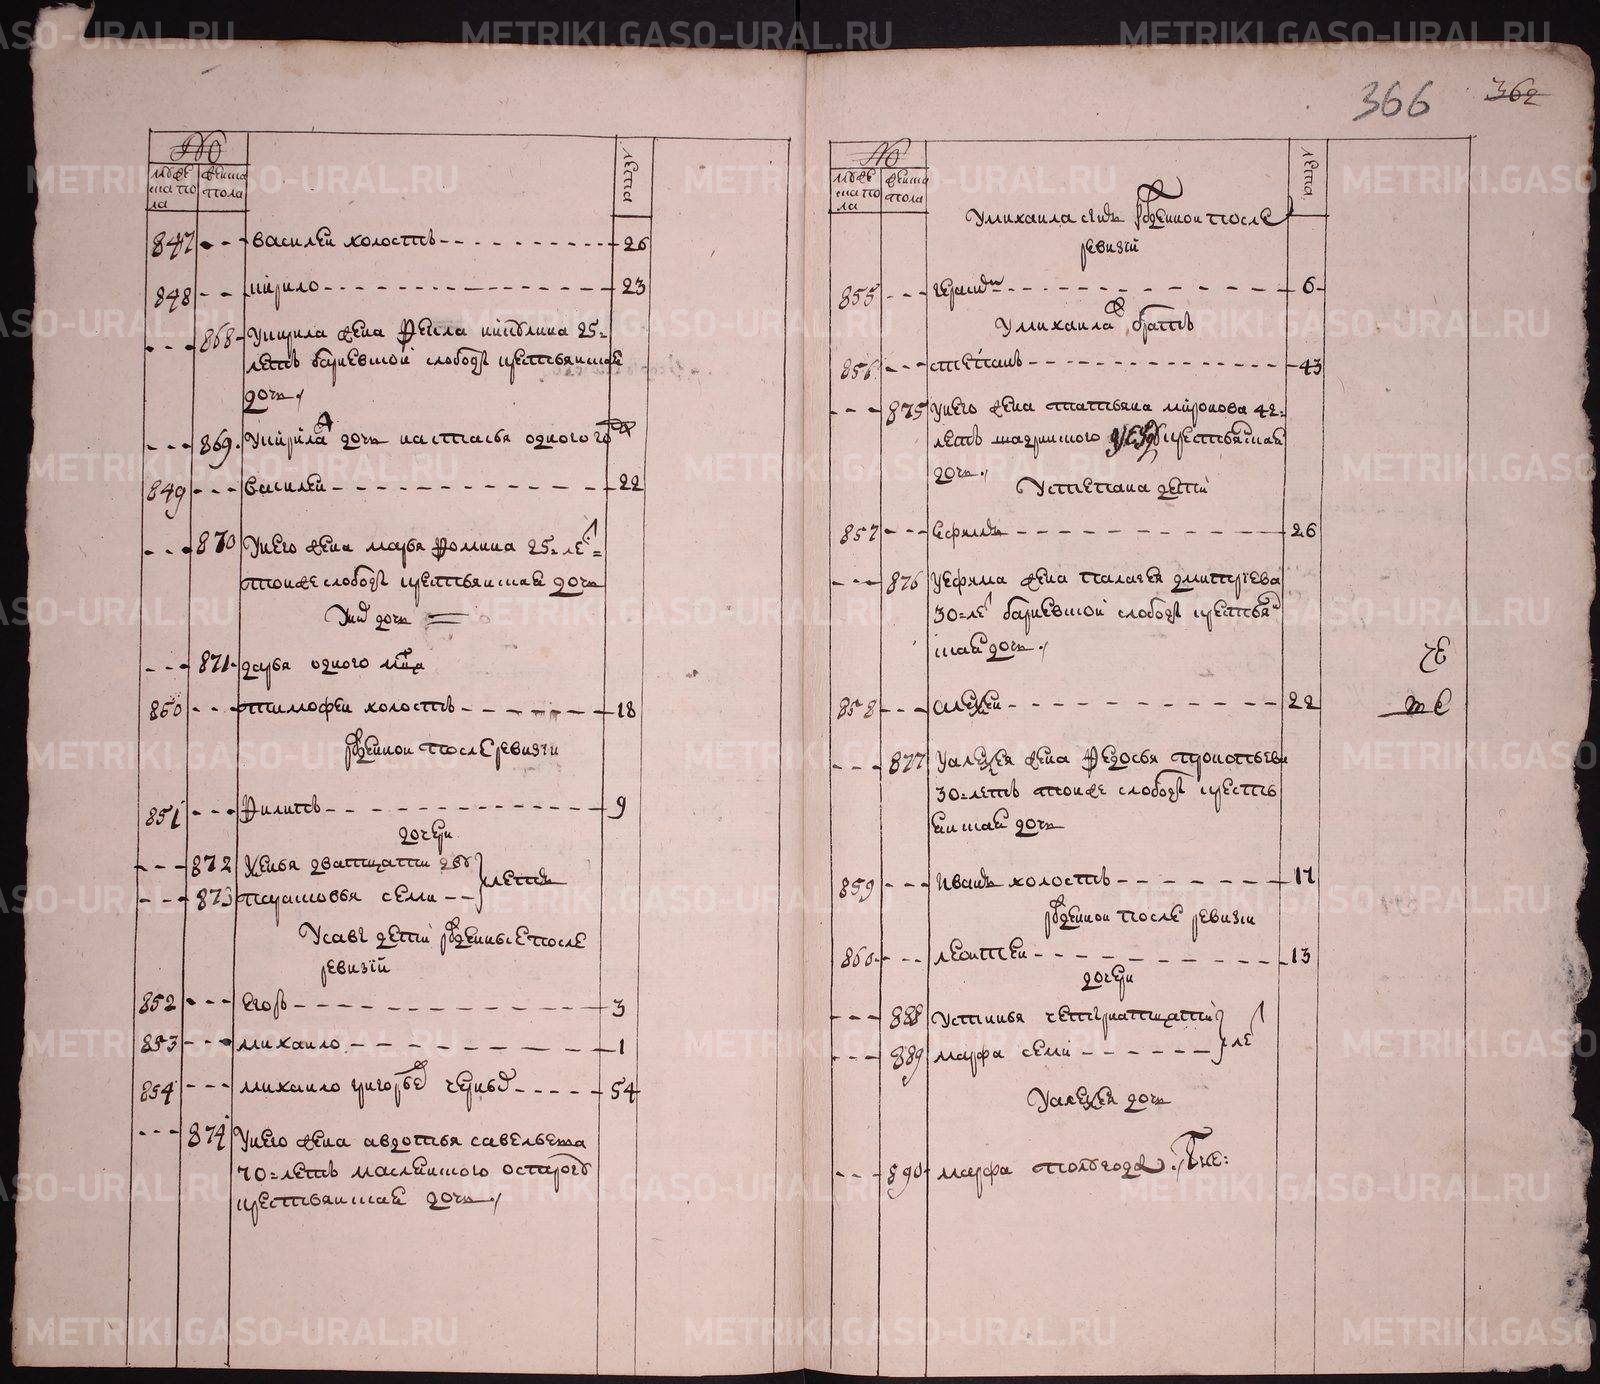 366 362
№
мужеска пола
женска пола
лета
847 василеи холостъ 26
848 кирило 23
868 укирила жена фекла никулина 25
летъ барневшои слободы крестьянская
дочь
869 укирила дочь настасья одного году
849 василеи 22
870 унего жена марья фомина 25 ле
тоиже слободы крестьянская дочь
унихъ дочь
871 дарья одного мца
850 тимофеи холостъ 18
рожденнои после ревизии
851 филипъ 9
дочери
872 ксенья дватцати дву
873 парасковья семи летъ
усавы детии рожденные после
ревизии
852 егоръ 3
853 михаило 1
854 михаило григорьевъ черных 54
874 унего жена авдотья савельева
70 летъ маслянского острогу
крестьянская дочь
№
мужеска пола
женска пола
лета
умихаила сынъ рожденнои после
ревизии
855 герасимъ 6
умихаила братъ
856 степанъ 43
875 унего жена татьяна миронова 42
летъ шадринского уезду крестьянская
дочь
устепана детии
857 ефимъ 26
876 уефима жена палагея дмитриева
30 ле барневшои слободы крестьян
ская дочь
858 алексеи 22
877 уалексея жена федосья прокопьева
30 летъ тоиже слободы кресть
янская дочь
859 иванъ холостъ 17
рожденнои после ревизии
860 леонтеи 13
дочери
888 устинья четырнатцатии
889 марфа семи ле
уалексея дочь
890 марфа полугода